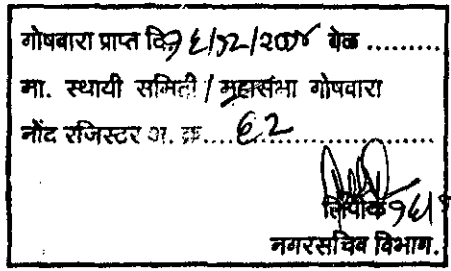 गोषवारा प्राप्त दि. १६/१२/२००४ वेळ ..........
मा. स्थायी समिती / महासभा गोषवारा
नोंद रजिस्टर अ. क्र.....६२...............
लिपीक १६/१
नगरसचिव विभाग.